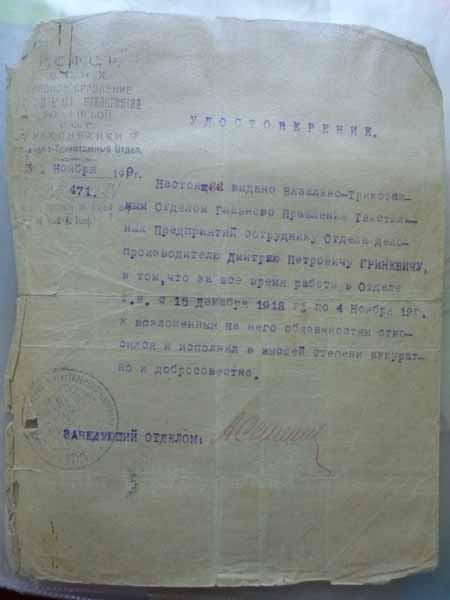 Р. С. Ф. С. Р.
В. С. Н. Х.
УДОСТОВЕРЕНИЕ.
Отдел.
3 Ноября 1919г.
471.
Настоящее выдано Вязально-Трикотаж-
ным Отделом Главного Правления Текстиль-
ных Предприятий сотруднику Отдела дело-
производителю Дмитрию Петровичу ГРИНЕВИЧУ,
в том, что за все время работы в Отделе
т.е. с 15 Декабря 1918 г. по 4 Ноября 19г.
к возложенным на него обязанностям отно-
сился и исполнял в высшей степени аккурат-
но и добросовестно.
ЗАВЕДУЮЩИЙ ОТДЕЛОМ: